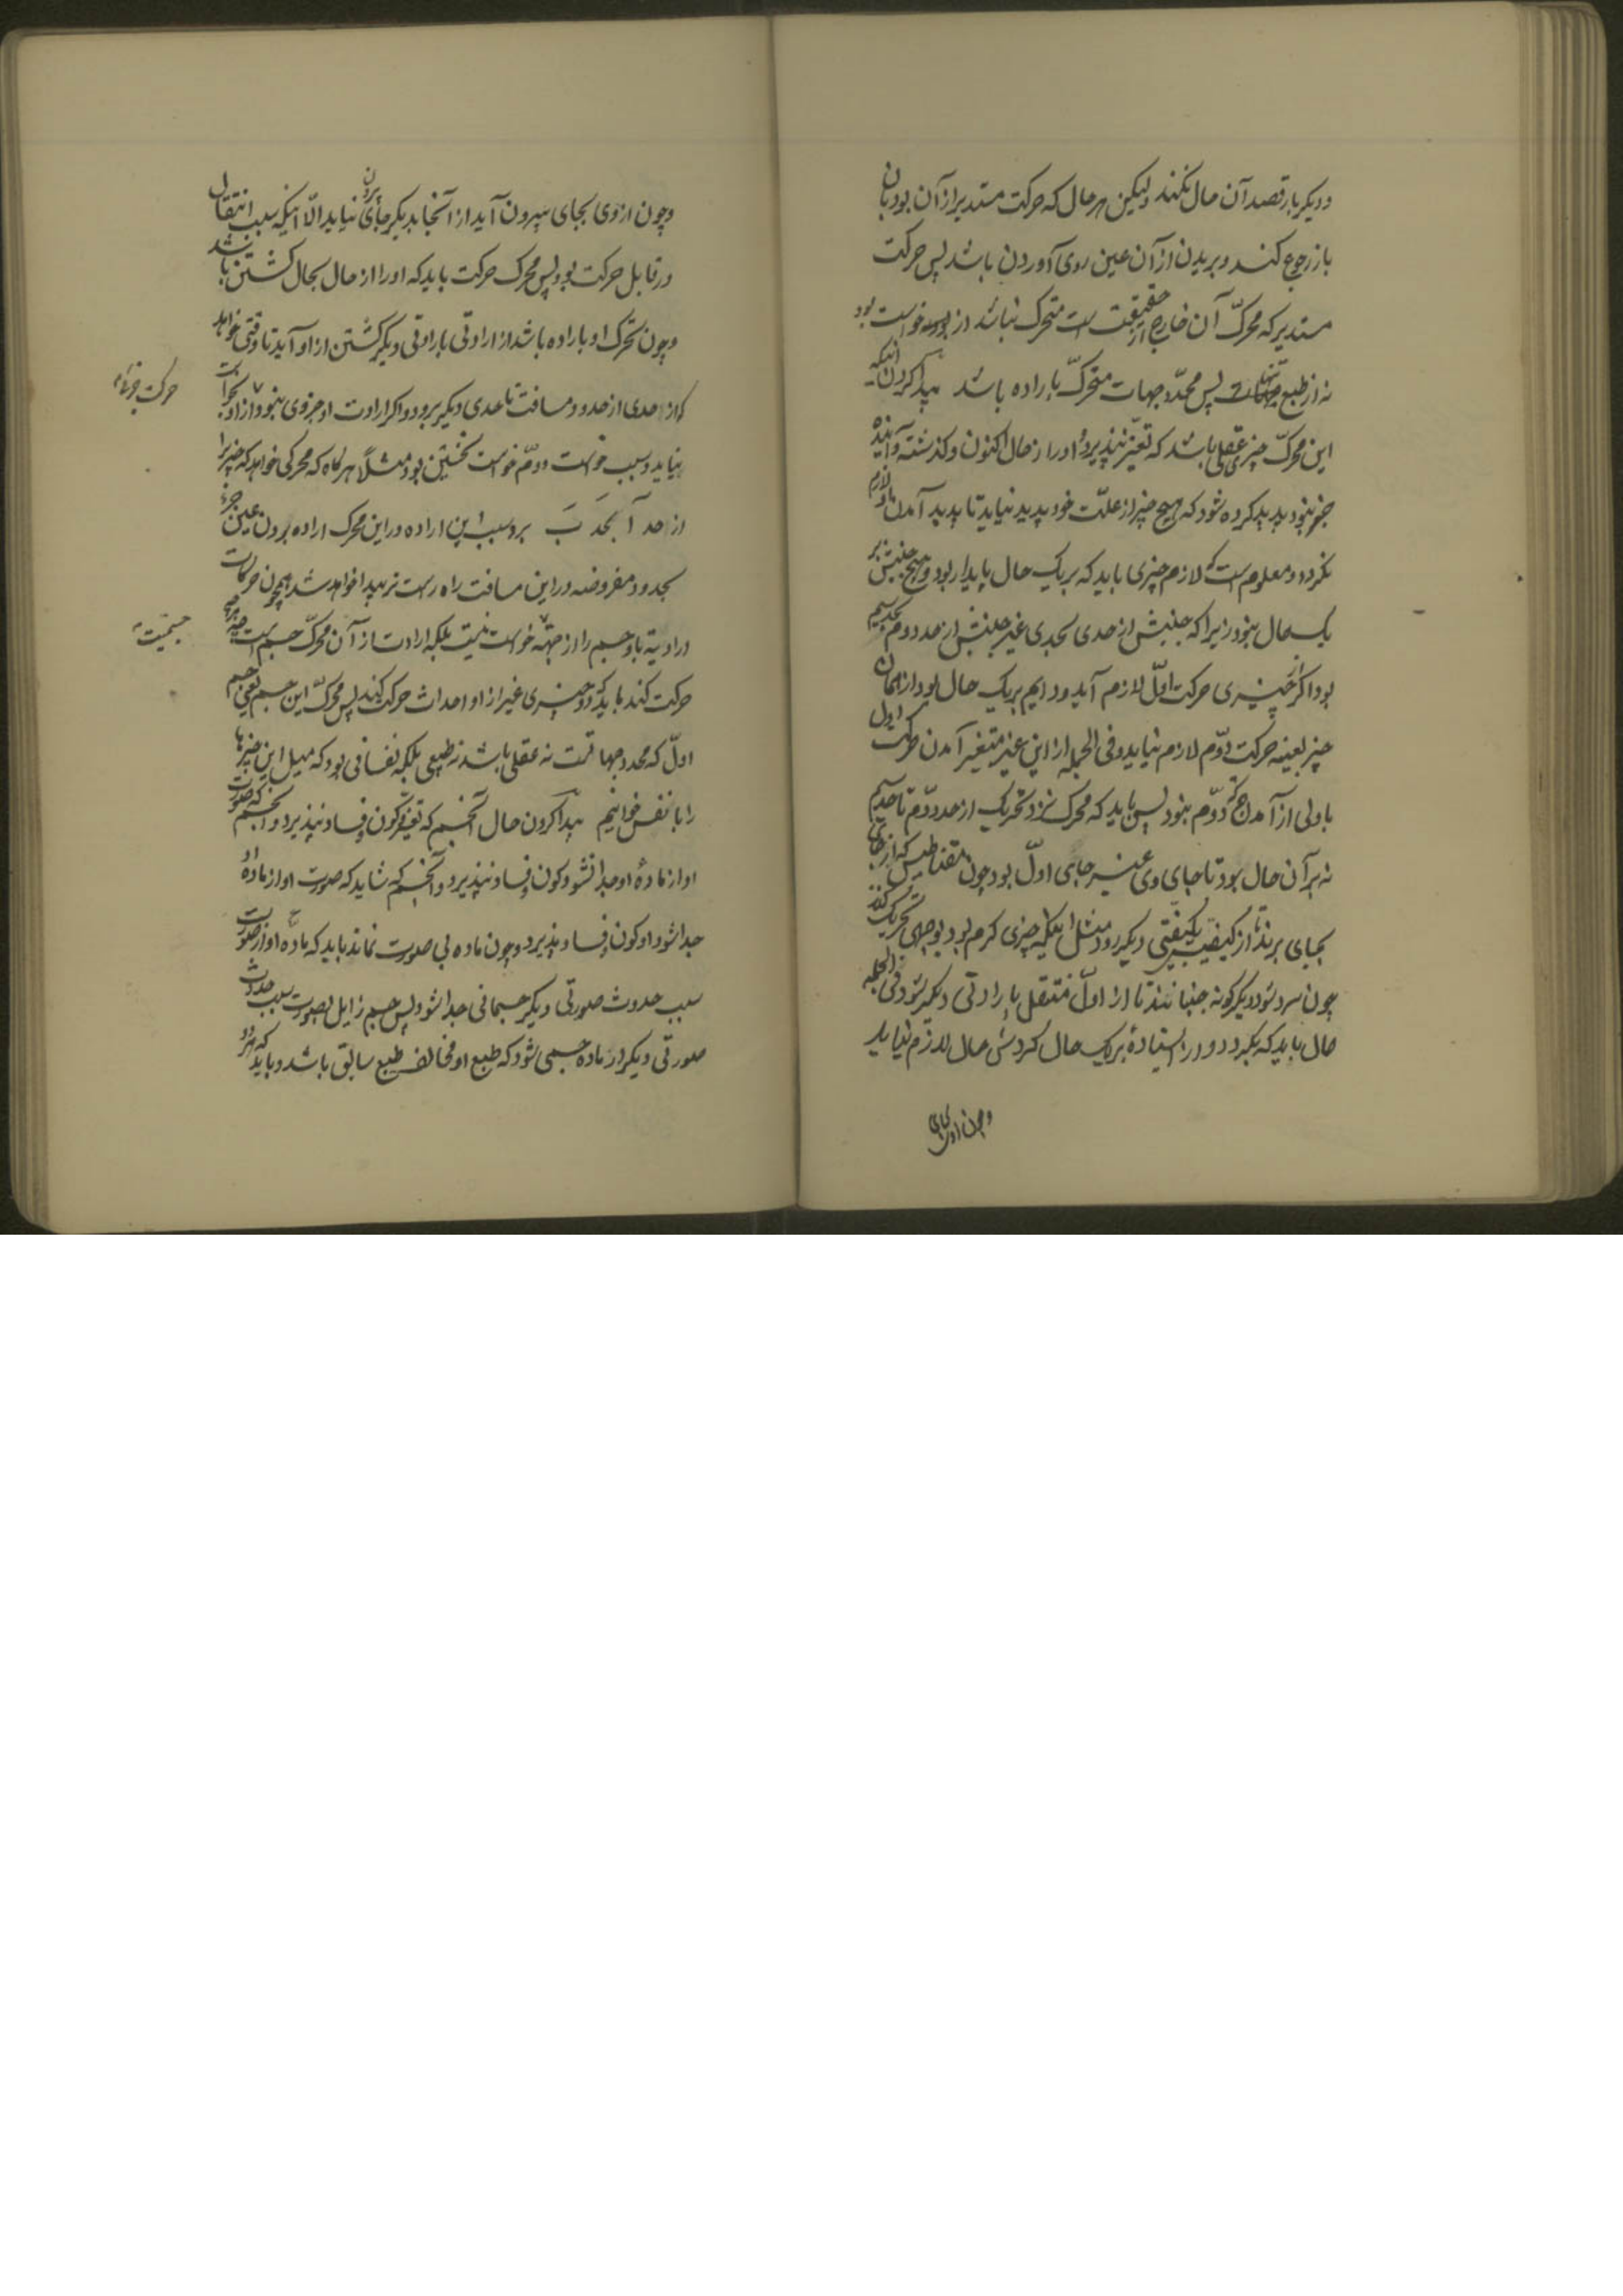 و دیگر بار قصد آن حال نکند ولیکن هر حال که حرکت مستدیر از آن بود بآن
باز رجوع کند و بریدن از آن عین روی آوردن باشد پس حرکت
مستدیر که محرّک آن خارج از حقیقت است متحرک نباشد از خواست بود
نه از طبع پس محدّد جهات متحرّک باراده باشد پیدا کردن آنکه
این محرّک چیزی عقلی باشد که تغیّر نپذیرد او را از حال اکنون و گذشته و آینده
خبر نبود پدید کرده شود که هیچ چیز از علّت خود پدید نیاید تا پدید آمدن او لازم
نگردد و معلوم است که لازم چیزی باید که بر یک حال پایدار بود و هیچ جنبش بر
یک حال نبود زیرا که جنبش از حدی بحدی غیر جنبش از حد دوم بحد سیم
بود اگر چیزی حرکت اوّل لازم آید و دایم بر یک حال بود از همان
چیز بعینه حرکت دوّم لازم نیاید و فی الجمله از این غیر متغیر آمدن حرکت اول
باولی از آمدن حرکت دوّم نبود پس باید که محرک نزد تحریک از حد دوّم تا حد سیم
نه بر آن حال بود تا جای وی غیر جای اوّل بود چون مقناطیس که از جای
بجای برند تا از کیفیتی بکیفیتی دیگر رود مثل آنکه چیزی گرم بود بوجهی تحریک کند
چون سرد شود دیگر گونه جنباند تا از اوّل منتقل بارادتی دیگر شود فی الجمله
حال باید که بگردد و از ایستادهٔ بر یک حال گردش حال لازم نیاید
و چون از وی بجای
و چون از وی بجای بیرون آید از آنجا بدیگر جای بیرون نیاید الّا آنکه سبب انتقال
در قابل حرکت بود پس محرک حرکت باید که او را از حال بحال گشتن باشد
و چون تحرک او باراده باشد از ارادتی بارادتی دیگر گشتن از او آید تا وقتی خواهد
که از حدی از حدود مسافت تا حدی دیگر برود و اگر ارادت او جزوی نبود از او حرکت
نیاید و سبب خواست دوّم خواست نخستین بود مثلًا هرگاه که محرکی خواهد که چیز را
از حد آ بحد بَ برد سبب این اراده در این محرک اراده بردن عین جزء
بحدود مفروضه در این مسافت راه راست نیز پیدا خواهد شد همچون حرکات
ارادیة باد و جسم را از جهة خواست نیست بلکه ارادت از آن محرّک جسم است
حرکت کند باید که چیزی غیر از او احداث حرکت کند پس محرّک این جسم یعنی جسم
اوّل که محدد جهاتست نه عقلی باشد نه طبیعی بلکه نفسانی بود که میل این چیزها
را با نفس خوانیم پیدا کردن حال آنجسم که تغیّر و کون و فساد نپذیرد و آنجسم که صورت
او از مادهٔ او جدا نشود کون و فساد نپذیرد و آنجسم که شاید که صورت او از ماده او
جدا شود او کون و فساد پذیرد و چون ماده بی صورت نماند باید که ماده او از صورت
بسبب حدوث صورتی دیگر جسمانی جدا شود پس جسم زایل بصورت بسبب حدوث
صورتی دیگر از ماده جسمی شود که طبع او مخالف طبع سابق باشد و باید که هر دو